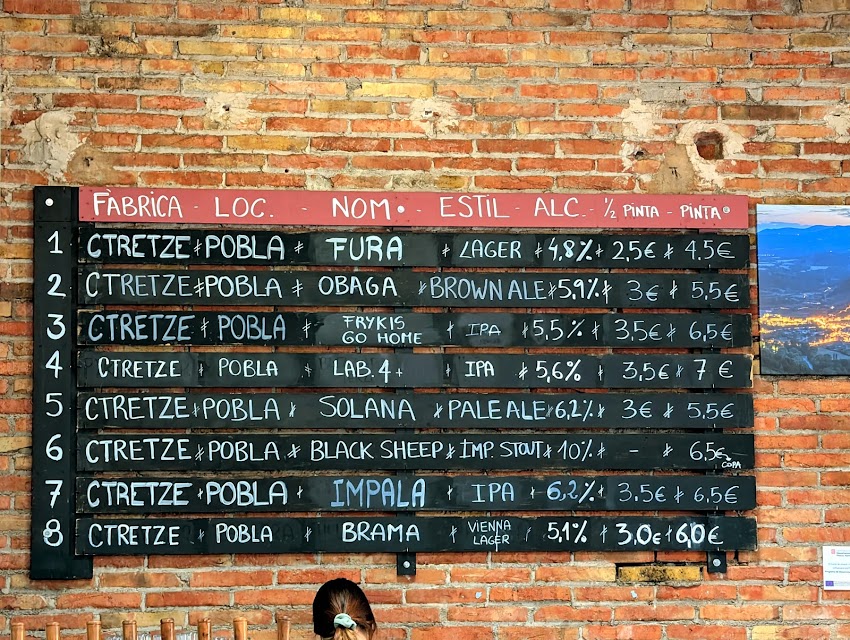 FÀBRICA - LOC. - NOM. - ESTIL - ALC. - ½ PINTA - PINTA
1 CTRETZE * POBLA * FURA * LAGER * 4,8% * 2,5€ * 4.5€
2 CTRETZE * POBLA * OBAGA * BROWN ALE * 5,9% * 3€ * 5,5€
3 CTRETZE * POBLA * FRYKIS GO HOME * IPA * 5,5% * 3,5€ * 6,5€
4 CTRETZE * POBLA * LAB. 4+ * IPA * 5,6% * 3,5€ * 7 €
5 CTRETZE * POBLA * SOLANA * PALE ALE * 6,2% * 3€ * 5.5€
6 CTRETZE * POBLA * BLACK SHEEP * IMP. STOUT * 10% * - * 6,5€ COPA
7 CTRETZE * POBLA * IMPALA * IPA * 6,2% * 3.5€ * 6,5€
8 CTRETZE * POBLA * BRAMA * VIENNA LAGER * 5,1% * 3,0€ * 6,0€